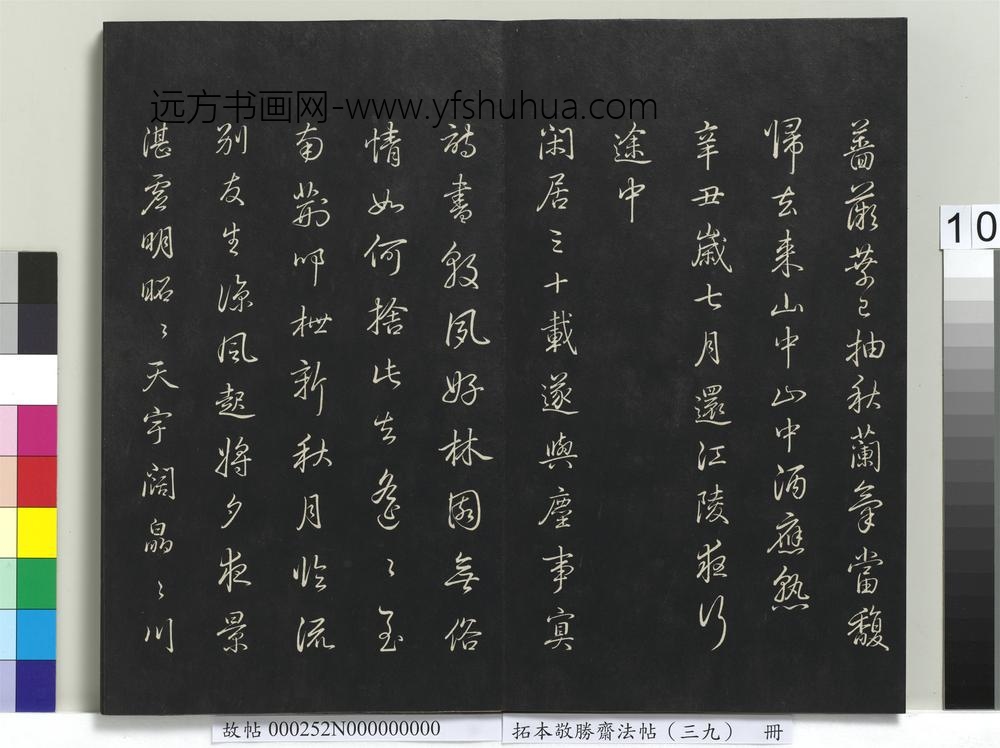 远方书画网-www.yfshuhua.com
薔薇葉已抽秋蘭氣當馥
歸去来山中山中酒應熟
辛丑歲七月還江陵夜行
途中
閑居三十載遂與塵事寘
詩書敦夙好林園無俗
情如何捨此去遙〻至
南荊叩枻新秋月臨流
別友生涼風起將夕夜景
湛虛明昭〻天宇闊皛〻川
10
故帖 000252N000000000
拓本敬勝齋法帖（三九） 冊